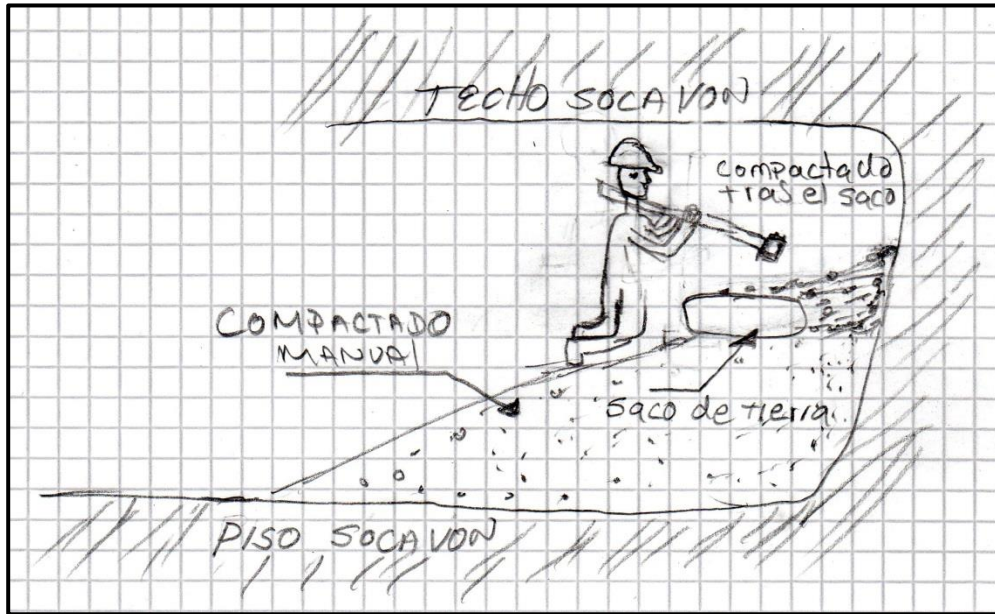 TECHO SOCAVON
compactado
tras el saco
COMPACTADO
MANUAL
saco de tierra
PISO SOCAVON